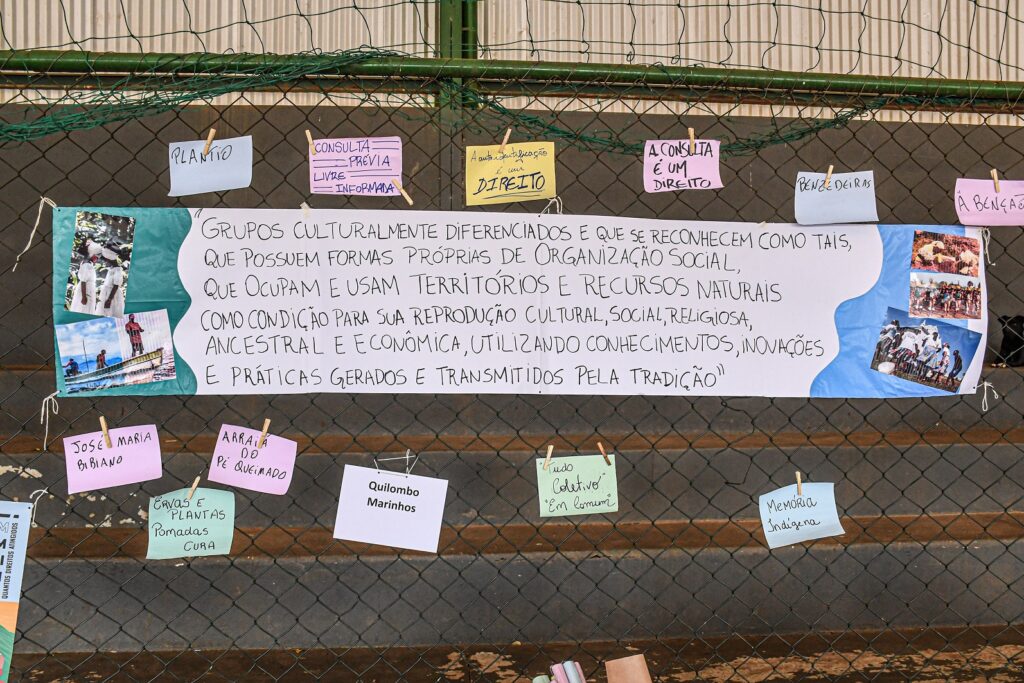 PLANTIO
CONSULTA
PRÉVIA
LIVRE
INFORMADA
A autoidentificação
é um
DIREITO
A CONSULTA
É UM
DIREITO
BENZEDEIRAS
A BENÇÃO
"GRUPOS CULTURALMENTE DIFERENCIADOS E QUE SE RECONHECEM COMO TAIS,
QUE POSSUEM FORMAS PRÓPRIAS DE ORGANIZAÇÃO SOCIAL,
QUE OCUPAM E USAM TERRITÓRIOS E RECURSOS NATURAIS
COMO CONDIÇÃO PARA SUA REPRODUÇÃO CULTURAL, SOCIAL, RELIGIOSA,
ANCESTRAL E ECONÔMICA, UTILIZANDO CONHECIMENTOS, INOVAÇÕES
E PRÁTICAS GERADOS E TRANSMITIDOS PELA TRADIÇÃO"
JOSÉ MARIA
BIBIANO
ARRAIÁ
DO
PÉ QUEIMADO
ERVAS E
PLANTAS
POMADAS
CURA
Quilombo
Marinhos
Tudo
Coletivo"
"Em comum"
MEMÓRIA
Indígena
QUANTOS DIREITOS ATINGIDOS